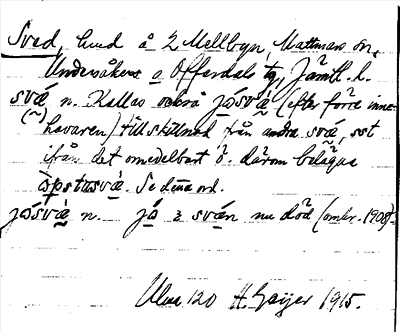 Sved, hmd å 2 Mellbyn, Mattmars sn,
Undersåkers o Offerdals tg, Jämtl. l.
svǽ n. Kallas också jɷ́svæ̀ (efter förre inne-
havaren) till skillnad från andra svæ, sst
ifrån det omedelbart ö. därom belägna
òpstʋsvæ̀. Se detta ord.
jɷ́svæ̀ n. jɷ̀ 2 svæ̀n nu död (omkr. 1908).
Ulma 120 H. Geijer 1915.